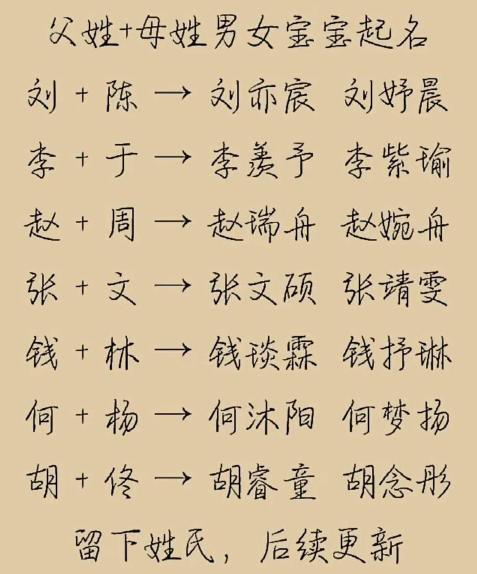 父姓+母姓男女宝宝起名
刘 + 陈 → 刘亦宸 刘妤晨
李 + 于 → 李羡予 李紫瑜
赵 + 周 → 赵瑞舟 赵婉舟
张 + 文 → 张文硕 张靖雯
钱 + 林 → 钱琰霖 钱抒琳
何 + 杨 → 何沐阳 何梦扬
胡 + 佟 → 胡睿童 胡念彤
留下姓氏，后续更新